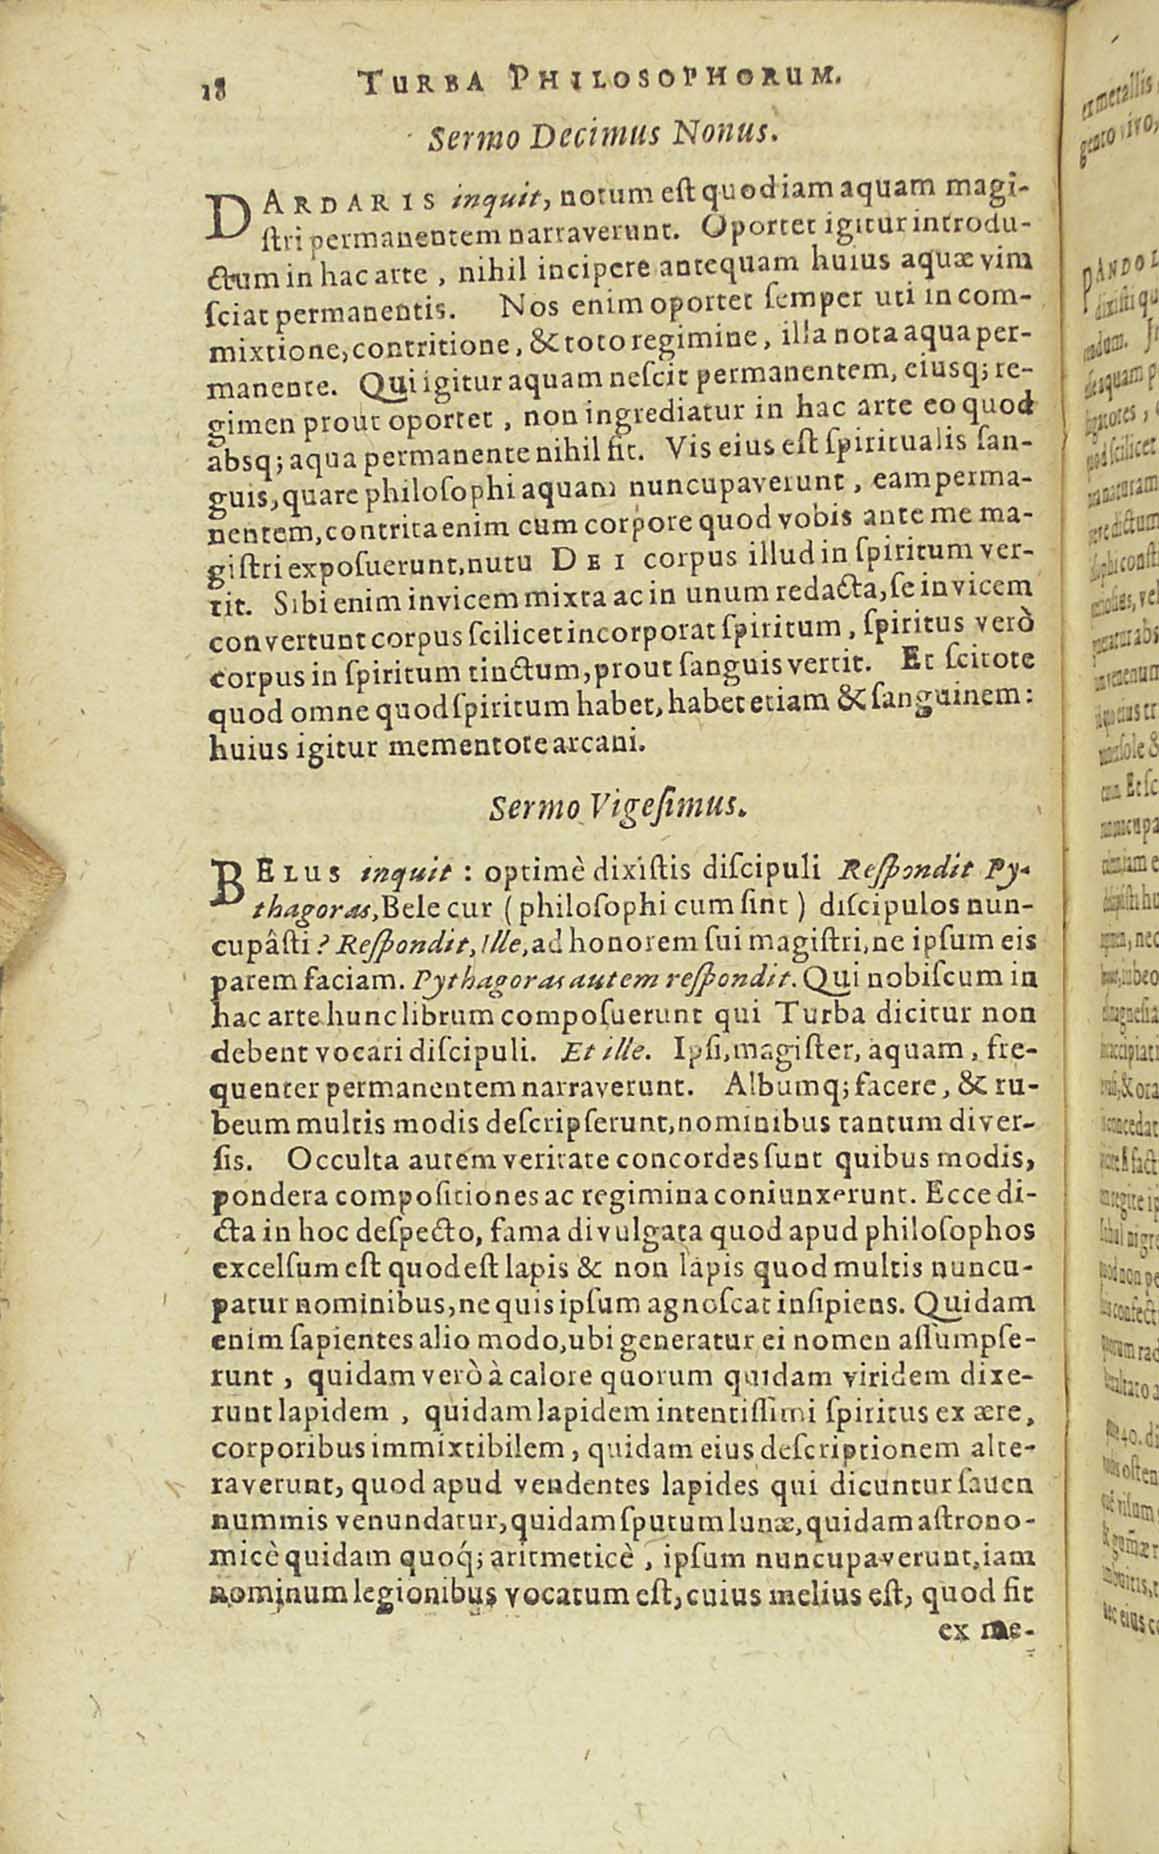 18 TURBA PHILOSOPHORUM.
Sermo Decimus Nonus.
DARDARIS inquit, notum est quod iam aquam magi-
stri permanentem narraverunt. Oportet igitur introdu-
ctum in hac arte, nihil incipere antequam huius aquæ vim
sciat permanentis. Nos enim oportet semper uti in com-
mixtione, contritione, & toto regimine, illa nota aqua per-
manente. Qui igitur aquam nescit permanentem, eiusq; re-
gimen prout oportet, non ingrediatur in hac arte eo quod
absq; aqua permanente nihil fit. Vis eius est spiritualis san-
guis, quare philosophi aquam nuncupaverunt, eam perma-
nentem, contrita enim cum corpore quod vobis ante me ma-
gistri exposuerunt, nutu DEI corpus illud in spiritum ver-
tit. Sibi enim invicem mixta ac in unum redacta, se invicem
convertunt corpus scilicet incorporat spiritum, spiritus verò
corpus in spiritum tinctum, prout sanguis vertit. Et scitote
quod omne quod spiritum habet, habet etiam & sanguinem:
huius igitur mementote arcani.
Sermo Vigesimus.
BELUS inquit: optimè dixistis discipuli Respondit Py-
thagoras, Bele cur (philosophi cum sint) discipulos nun-
cupâsti? Respondit, Ille, ad honorem sui magistri, ne ipsum eis
parem faciam. Pythagoras autem respondit. Qui nobiscum in
hac arte hunc librum composuerunt qui Turba dicitur non
debent vocari discipuli. Et ille. Ipsi, magister, aquam, fre-
quenter permanentem narraverunt. Albumq; facere, & ru-
beum multis modis descripserunt, nominibus tantum diver-
sis. Occulta autem veritate concordes sunt quibus modis,
pondera compositiones ac regimina coniunxerunt. Ecce di-
cta in hoc despecto, fama divulgata quod apud philosophos
excelsum est quod est lapis & non lapis quod multis nuncu-
patur nominibus, ne quis ipsum agnoscat insipiens. Quidam
enim sapientes alio modo, ubi generatur ei nomen assumpse-
runt, quidam verò à calore quorum quidam viridem dixe-
runt lapidem, quidam lapidem intentissimi spiritus ex ære,
corporibus immixtibilem, quidam eius descriptionem alte-
raverunt, quod apud vendentes lapides qui dicuntur sauen
nummis venundatur, quidam sputum lunæ, quidam astrono-
micè quidam quoq́; aritmeticè, ipsum nuncupaverunt, iam
nominum legionibus vocatum est, cuius melius est, quod fit
ex me-